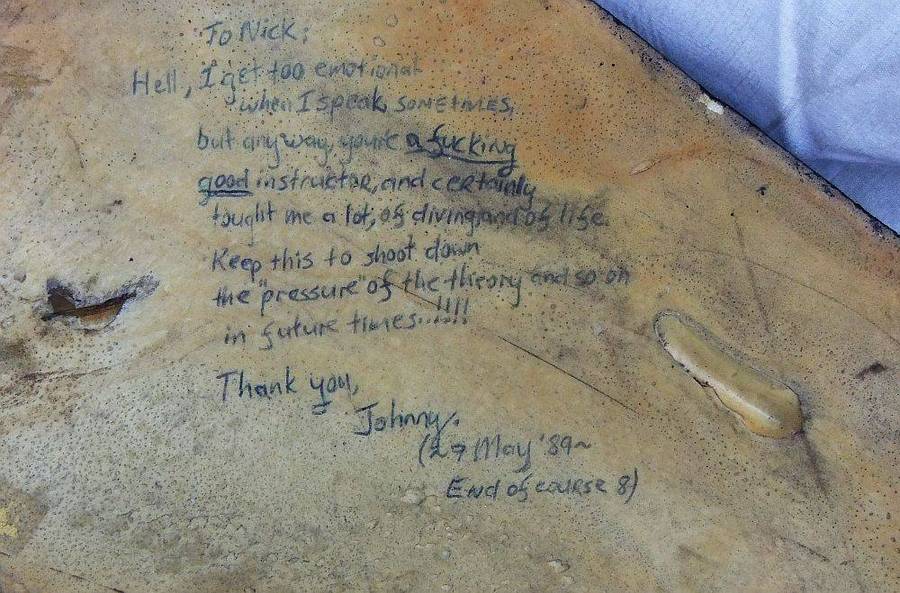 To Nick:
Hell, I get too emotional
when I speak sometimes,
but anyway, you're a fucking
good instructor, and certainly
tought me a lot, of diving, and of life.
Keep this to shoot down
the "pressure" of the theory and so on
in future times...!!!!
Thank you,
Johnny.
(27 May '89~
End of course 8)